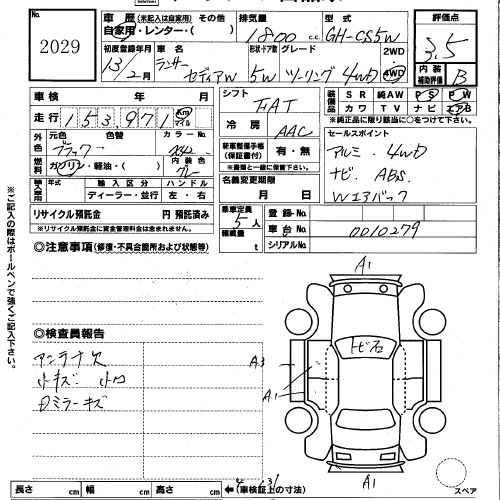 No.
2029
車歴 (未記入は自家用) その他
自家用・レンター・( )
排気量
1800 c.c.
型式
GH-CS5W
評価点
3.5
初度登録年月
13/2月
車名
ランサー
セディアW
形状・ドア数
5W
グレード
ツーリング 4WD
2WD
4WD
内装
補助評価
B
車検 年 月
走行 153971 Km マイル
シフト
FAT
装備品
SR 純AW PS PW
カワ TV ナビ エアB
※純正品に限り該当に○をつけて下さい。
外色
元色
ブラック
色替
カラーNo.
冷房
AAC
セールスポイント
アルミ . 4WD
ナビ. ABS.
W エアバック
燃料
ガソリン・軽油・( )
内装色
グレー
取扱整備手帳
(保証書付)
有・無
※書類と一緒に保管して下さい。
輸入車
年式
輸入区分
ディーラー・並行
ハンドル
左・右
名義変更期限
月 日
リサイクル預託金 円 預託済み
※リサイクル預託金に資金管理料金は含まれません。
乗車定員
5人
積載量
t
登録No.
車台No.
0010279
シリアルNo.
◎注意事項 (修復・不具合箇所および状態等)
※ご記入の際はボールペンで強くご記入下さい。
◎検査員報告
アンテナ欠
小キズ 小凹
Dミラーキズ
A1
トビ石
A3
A1
A1
スペア
長さ cm 幅 cm 高さ cm (車検証上の寸法)